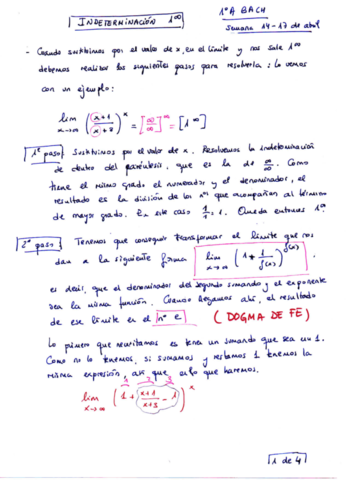 INDETERMINACIÓN 1^∞
1ºA BACH
Semana 14-17 de abril
- Cuando sustituimos por el valor de x, en el límite y nos sale 1^∞
debemos realizar los siguientes pasos para resolverla: Lo vemos
con un ejemplo:
lim x→∞ (x+1/x+3)^x = [∞/∞]^∞ = [1^∞]
1º paso) Sustituimos por el valor de x. Resolvemos la indeterminación
de dentro del paréntesis, que es la de ∞/∞. Como
tiene el mismo grado el numerador y el denominador, el
resultado es la división de los nºs que acompañan al término
de mayor grado. En este caso 1/1 = 1. Queda entonces 1^∞
2º paso) Tenemos que conseguir transformar el límite que nos
dan a la siguiente forma lim x→∞ (1 + 1/f(x))^f(x)
es decir, que el denominador del segundo sumando y el exponente
sea la misma función. Cuando llegamos ahí, el resultado
de ese límite es el nº e (DOGMA DE FE)
Lo primero que necesitamos es tener un sumando que sea un 1.
Como no lo tenemos, si sumamos y restamos 1 tenemos la
misma expresión, así que es lo que haremos.
1 2 3
lim x→∞ (1 + x+1/x+3 - 1)^x
1 de 4